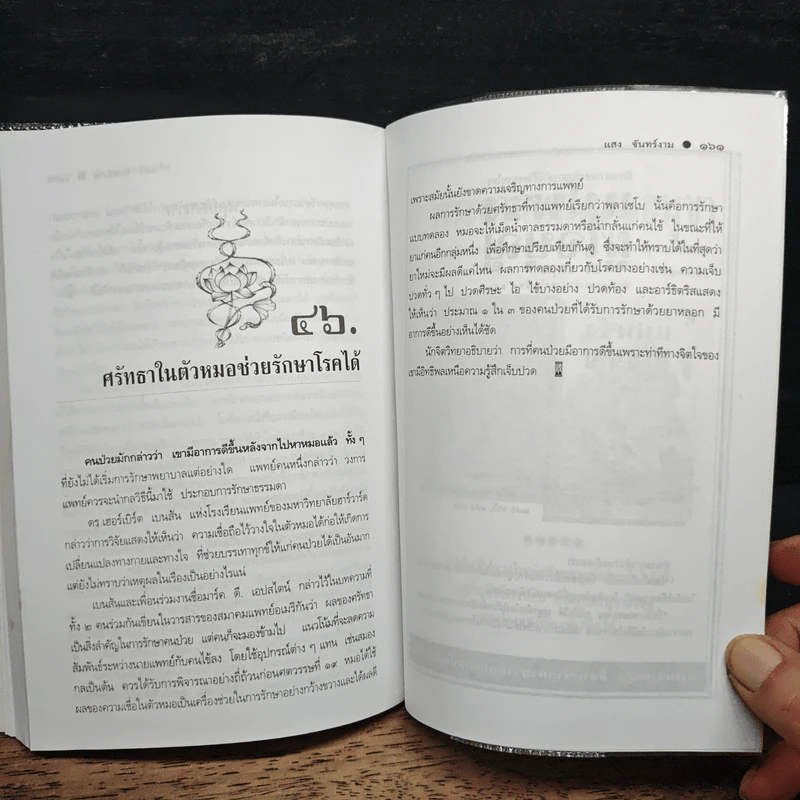 ๔๖.
ศรัทธาในตัวหมอช่วยรักษาโรคได้
คนป่วยมักกล่าวว่า เขามีอาการดีขึ้นหลังจากไปหาหมอแล้ว ทั้ง ๆ
ที่ยังไม่ได้เริ่มการรักษาพยาบาลแต่อย่างใด แพทย์คนหนึ่งกล่าวว่า วงการ
แพทย์ควรจะนำกลวิธีนี้มาใช้ ประกอบการรักษาธรรมดา
ดร.เฮอร์เบิร์ต เบนสัน แห่งโรงเรียนแพทย์ของมหาวิทยาลัยฮาร์วาร์ด
กล่าวว่าการวิจัยแสดงให้เห็นว่า ความเชื่อถือไว้วางใจในตัวหมอได้ก่อให้เกิดการ
เปลี่ยนแปลงทางกายและทางใจ ที่ช่วยบรรเทาทุกข์ให้แก่คนป่วยได้เป็นอันมาก
แต่ยังไม่ทราบว่าเหตุผลในเรื่องเป็นอย่างไรแน่
เบนสันและเพื่อนร่วมงานชื่อมาร์ค ดี. เอปสไตน์ กล่าวไว้ในบทความที่
ทั้ง ๒ คนร่วมกันเขียนในวารสารของสมาคมแพทย์อเมริกันว่า ผลของศรัทธา
เป็นสิ่งสำคัญในการรักษาคนป่วย แต่คนก็จะมองข้ามไป แนวโน้มที่จะลดความ
สัมพันธ์ระหว่างนายแพทย์กับคนไข้ลง โดยใช้อุปกรณ์ต่าง ๆ แทน เช่นสมอง
กลเป็นต้น ควรได้รับการพิจารณาอย่างถี่ถ้วนก่อนศตวรรษที่ ๑๙ หมอได้ใช้
ผลของความเชื่อในตัวหมอเป็นเครื่องช่วยในการรักษาอย่างกว้างขวางและได้ผลดี
แสง จันทร์งาม ● ๑๖๑
เพราะสมัยนั้นยังขาดความเจริญทางการแพทย์
ผลการรักษาด้วยศรัทธาที่ทางแพทย์เรียกว่าพลาเซโบ นั้นคือการรักษา
แบบทดลอง หมอจะให้เม็ดน้ำตาลธรรมดาหรือน้ำกลั่นแก่คนไข้ ในขณะที่ให้
ยาแก่คนอีกกลุ่มหนึ่ง เพื่อศึกษาเปรียบเทียบกันดู ซึ่งจะทำให้ทราบได้ในที่สุดว่า
ยาใหม่จะมีผลดีแค่ไหน ผลการทดลองเกี่ยวกับโรคบางอย่างเช่น ความเจ็บ
ปวดทั่ว ๆ ไป ปวดศีรษะ ไอ ไข้บางอย่าง ปวดท้อง และอาร์ธิตริสแสดง
ให้เห็นว่า ประมาณ ๑ ใน ๓ ของคนป่วยที่ได้รับการรักษาด้วยยาหลอก มี
อาการดีขึ้นอย่างเห็นได้ชัด
นักจิตวิทยาอธิบายว่า การที่คนป่วยมีอาการดีขึ้นเพราะท่าทีทางจิตใจของ
เขามีอิทธิพลเหนือความรู้สึกเจ็บปวด